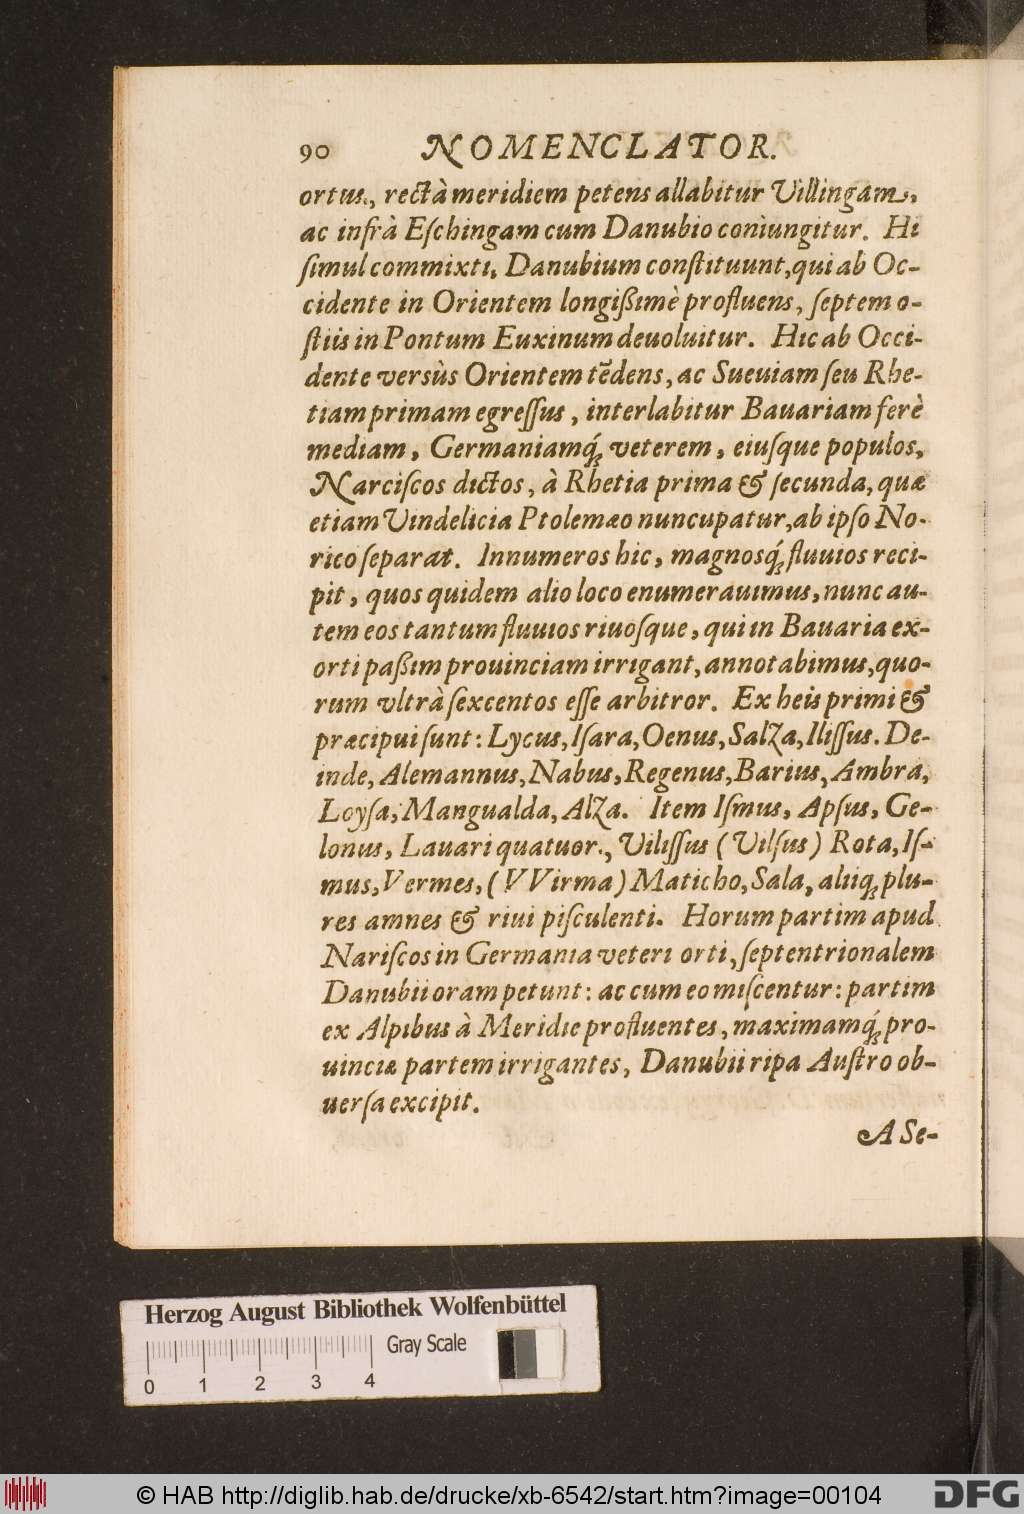 90 NOMENCLATOR.
ortus, rectà meridiem petens allabitur Villingam,
ac infrà Eſchingam cum Danubio coniungitur. Hi
ſimul commixti, Danubium conſtituunt, qui ab Oc-
cidente in Orientem longißimè profluens, ſeptem o-
ſtiis in Pontum Euxinum deuoluitur. Hic ab Occi-
dente versùs Orientem tẽdens, ac Sueuiam ſeu Rhe-
tiam primam egreſſus, interlabitur Bauariam ferè
mediam, Germaniamq́; veterem, eiuſque populos,
Narciſcos dictos, à Rhetia prima & ſecunda, quæ
etiam Vindelicia Ptolemæo nuncupatur, ab ipſo No-
rico ſeparat. Innumeros hic, magnosq́; fluuios reci-
pit, quos quidem alio loco enumerauimus, nunc au-
tem eos tantum fluuios riuoſque, qui in Bauaria ex-
orti paßim prouinciam irrigant, annotabimus, quo-
rum vltrà ſexcentos eſſe arbitror. Ex heis primi &
præcipui ſunt: Lycus, Iſara, Oenus, Salza, Iliſſus. De-
inde, Alemannus, Nabus, Regenus, Barius, Ambra,
Loyſa, Mangualda, Alza. Item Iſmus, Apſus, Ge-
lonus, Lauari quatuor, Viliſſus (Vilſus) Rota, Iſ-
mus, Vermes, (VVirma) Maticho, Sala, aliiq; plu-
res amnes & riui piſculenti. Horum partim apud
Nariſcos in Germania veteri orti, ſeptentrionalem
Danubii oram petunt: ac cum eo miſcentur: partim
ex Alpibus à Meridie profluentes, maximamq́; pro-
uinciæ partem irrigantes, Danubii ripa Auſtro ob-
uerſa excipit.
A Se-
Herzog August Bibliothek Wolfenbüttel
Gray Scale
0 1 2 3 4
© HAB http://diglib.hab.de/drucke/xb-6542/start.htm?image=00104
DFG